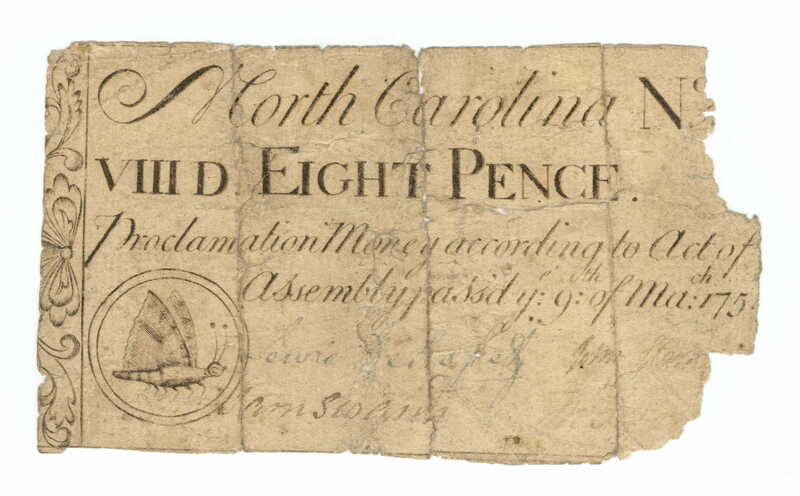 North Carolina No
VIII D. EIGHT PENCE.
Proclamation Money according to Act of
Assembly pass'd ye: 9:th of Ma:ch 175
Lewis